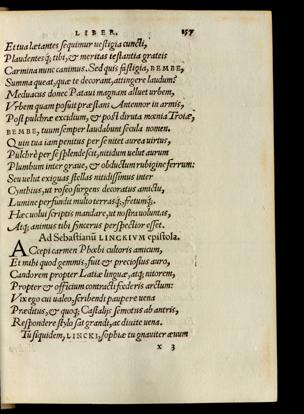 LIBER. 157
Et tua lætantes sequimur uestigia cuncti,
Plaudentesq́; tibi, & meritas testantia grateis
Carmina nunc canimus. Sed quis fastigia, BEMBE,
Summa queat, quæ te decorant, attingere laudum?
Meduacus donec Pataui magnam alluet urbem,
Vrbem quam posuit præstans Antennor in armis,
Post pulchræ excidium, & post diruta mœnia Troiæ,
BEMBE, tuum semper laudabunt secula nomen.
Quin tua iam penitus per se nitet aurea uirtus,
Pulchrè per se splendescit, nitidum uelut aurum
Plumbum inter graue, & obductum rubigine ferrum:
Seu uelut exiguas stellas nitidissimus inter
Cynthius, ut roseo surgens decoratus amictu,
Lumine perfundit multo terrasq́;, fretumq́;.
Hæc uolui scriptis mandare, ut nostra uoluntas,
Atq; animus tibi sincerus perspector esset.
Ad Sebastianū LINCKIVM epistola.
ACcepi carmen Phœbi cultoris amicum,
Et mihi quod gemmis, fuit & preciosius auro,
Candorem propter Latiæ linguæ, atq; nitorem,
Propter & officium contracti fœderis arctum:
Vix ego cui ualeo, scribendi paupere uena
Præditus, & quoq; Castalijs semotus ab antris,
Respondere stylo sat grandi, ac diuite uena.
Tu siquidem, LINCKI, sophiæ tu gnauiter æuum
x 3